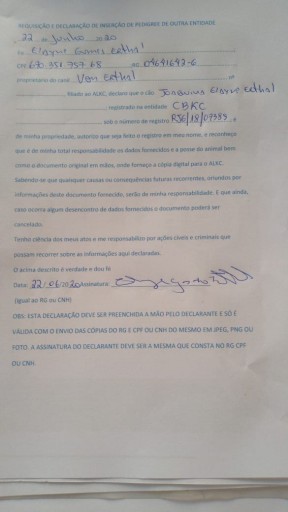 REQUISIÇÃO E DECLARAÇÃO DE INSERÇÃO DE PEDIGREE DE OUTRA ENTIDADE
22 de Junho 2020
Eu
CPF RG
Proprietário do canil Nº
filiado ao ALKC, declaro que o cão
registrado na entidade CBKC
sob o número de registro
de minha propriedade, autorizo que seja feito o registro em meu nome, e reconheço
que é de minha total responsabilidade os dados fornecidos e a posse do animal bem
como o documento original em mãos, onde forneço a cópia digital para o ALKC.
Sabendo-se que quaisquer causas ou consequências futuras recorrentes, oriundos por
informações deste documento fornecido, serão de minha responsabilidade. E que ainda,
caso ocorra algum desencontro de dados fornecidos o documento poderá ser
cancelado.
Tenho ciência dos meus atos e me responsabilizo por ações cíveis e criminais que
possam recorrer sobre as informações aqui declaradas.
O acima descrito é verdade e dou fé
Data: 22/06/2020 Assinatura:
(Igual ao RG ou CNH)
OBS: ESTA DECLARAÇÃO DEVE SER PREENCHIDA A MÃO PELO DECLARANTE E SÓ É
VÁLIDA COM O ENVIO DAS CÓPIAS DO RG E CPF OU CNH DO MESMO EM JPEG, PNG OU
FOTO. A ASSINATURA DO DECLARANTE DEVE SER A MESMA QUE CONSTA NO RG CPF
OU CNH.